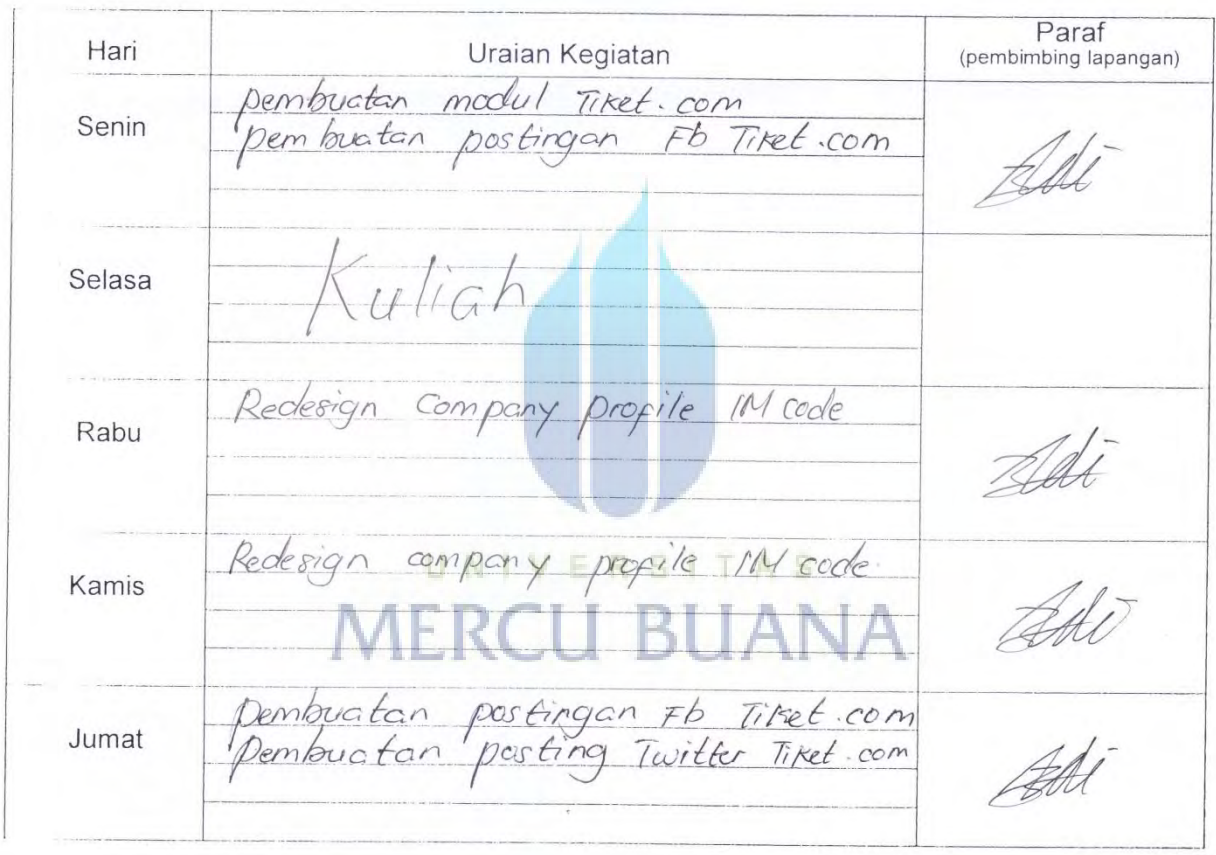 Hari Uraian Kegiatan Paraf
(pembimbing lapangan)
Senin
pembuatan modul Tiket.com
pembuatan postingan Fb Tiket.com
Selasa
Kuliah
Rabu
Redesign Company profile IM code
Kamis
Redesign company profile IM code
UNIVERSITAS
MERCU BUANA
Jumat
Pembuatan postingan Fb Tiket.com
Pembuatan posting Twitter Tiket.com